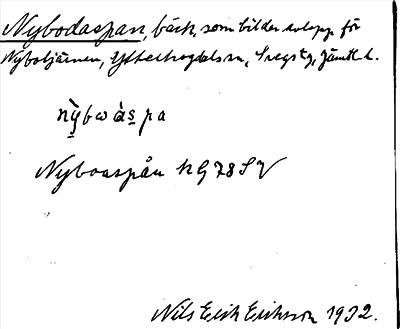 Nybodaspan, bäck, som bildar avlopp för
Nybotjärnen, Ytterhogdals sn, Svegs tg, Jämtl. l.
nỳbwàspa
Nyboaspån KG 78 SV
Nils Erik Eriksson 1932.